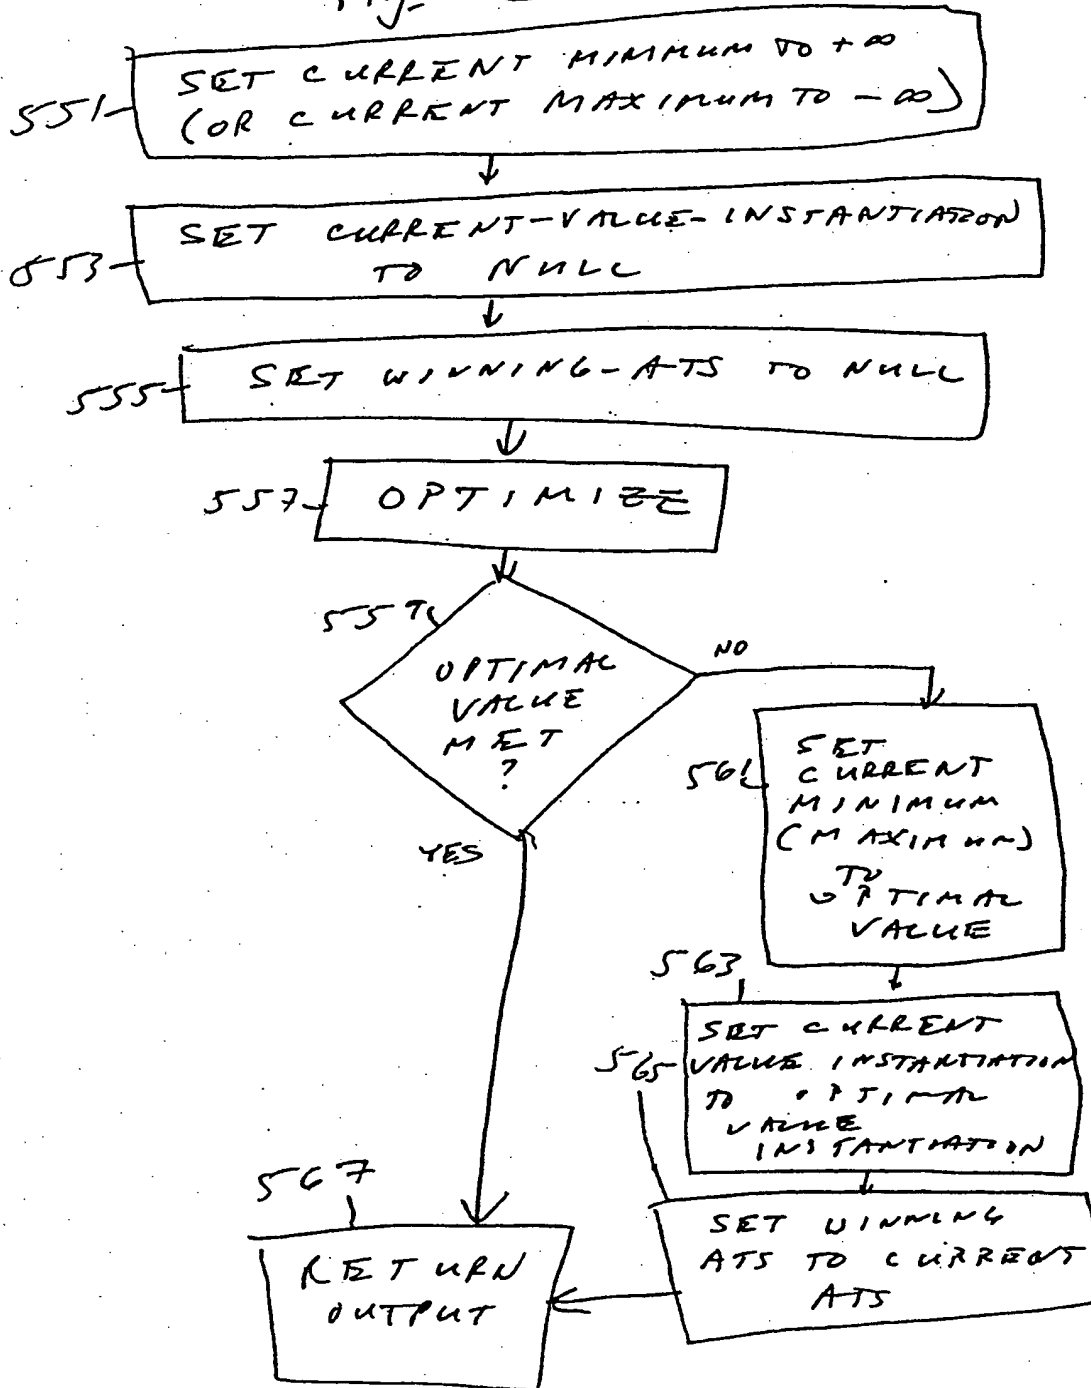 Fig.
SET CURRENT MINIMUM TO +∞
(OR CURRENT MAXIMUM TO -∞)
551
SET CURRENT-VALUE-INSTANTIATION
TO NULL
553
SET WINNING-ATS TO NULL
555
557
OPTIMIZE
559
OPTIMAL
VALUE
MET
?
NO
YES
561
SET
CURRENT
MINIMUM
(MAXIMUM)
TO
OPTIMAL
VALUE
563
SET CURRENT
VALUE INSTANTIATION
TO OPTIMAL
VALUE
INSTANTIATION
565
SET WINNING
ATS TO CURRENT
ATS
567
RETURN
OUTPUT